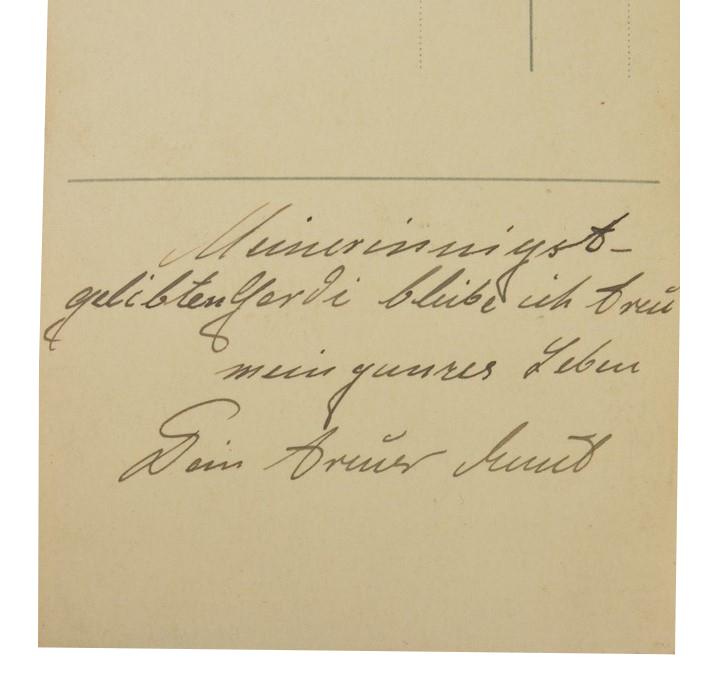 Meiner innigst-
gelibten Gerdi bleibe ich treu
mein ganzes Leben
Dein treuer